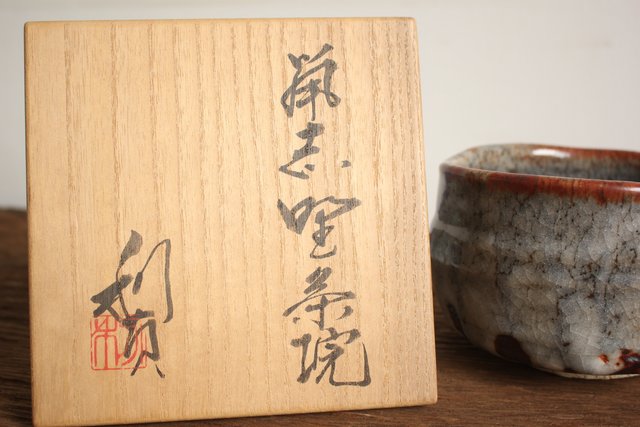 鼠志野茶碗
利貞